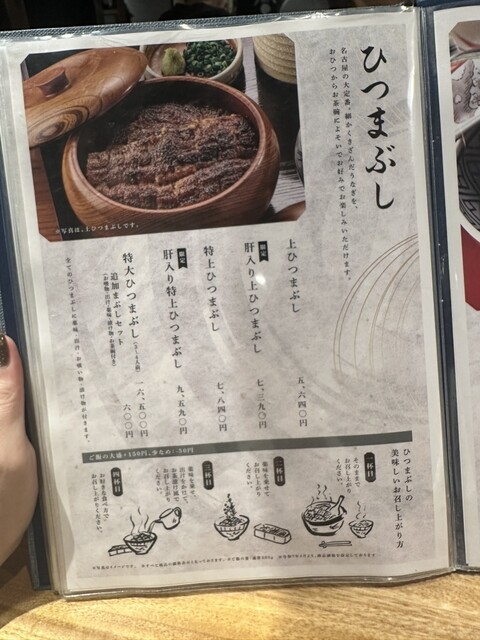 ひつまぶし
名古屋の大定番。細かくきざんだうなぎを、
おひつからお茶碗によそいでお好みでお楽しみいただけます。
※写真は、上ひつまぶしです。
上ひつまぶし 五、六四〇円
限定 肝入り上ひつまぶし 七、三九〇円
特上ひつまぶし 七、八四〇円
限定 肝入り特上ひつまぶし 九、五九〇円
特大ひつまぶし（3〜4人前） 一六、五〇〇円
追加まぶしセット 六〇〇円
（お吸物・出汁・薬味・漬け物・お茶碗付き）
全てのひつまぶしに薬味・出汁・お吸い物・漬け物が付きます。
ご飯の大盛+150円、少なめ-50円
ひつまぶしの
美味しいお召し上がり方
一杯目
そのままで
お召し上がり
ください。
二杯目
薬味を乗せて
お召し上がり
ください。
三杯目
薬味を乗せて
出汁をかけて、
お茶漬け風で
お召し上がり
ください。
四杯目
お好きな食べ方で
お召し上がりください。
※写真はイメージです。